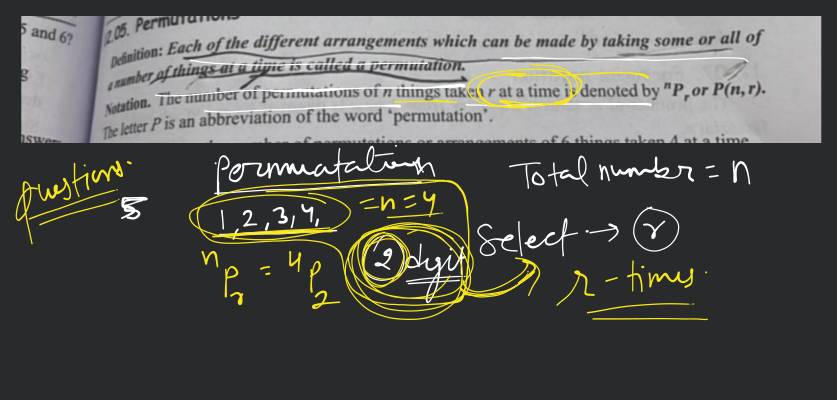 5 and 6?
2.05. Permutations
Definition: Each of the different arrangements which can be made by taking some or all of
a number of things at a time is called a permutation.
Notation. The number of permutations of n things taken r at a time is denoted by ⁿPᵣ or P(n, r).
The letter P is an abbreviation of the word 'permutation'.
of permutations or arrangements of 6 things taken 4 at a time
Questions.
5
Permutation
Total number = n
1, 2, 3, 4, = n = 4
Select → r
2 digit
ⁿPᵣ = ⁴P₂
r - times.